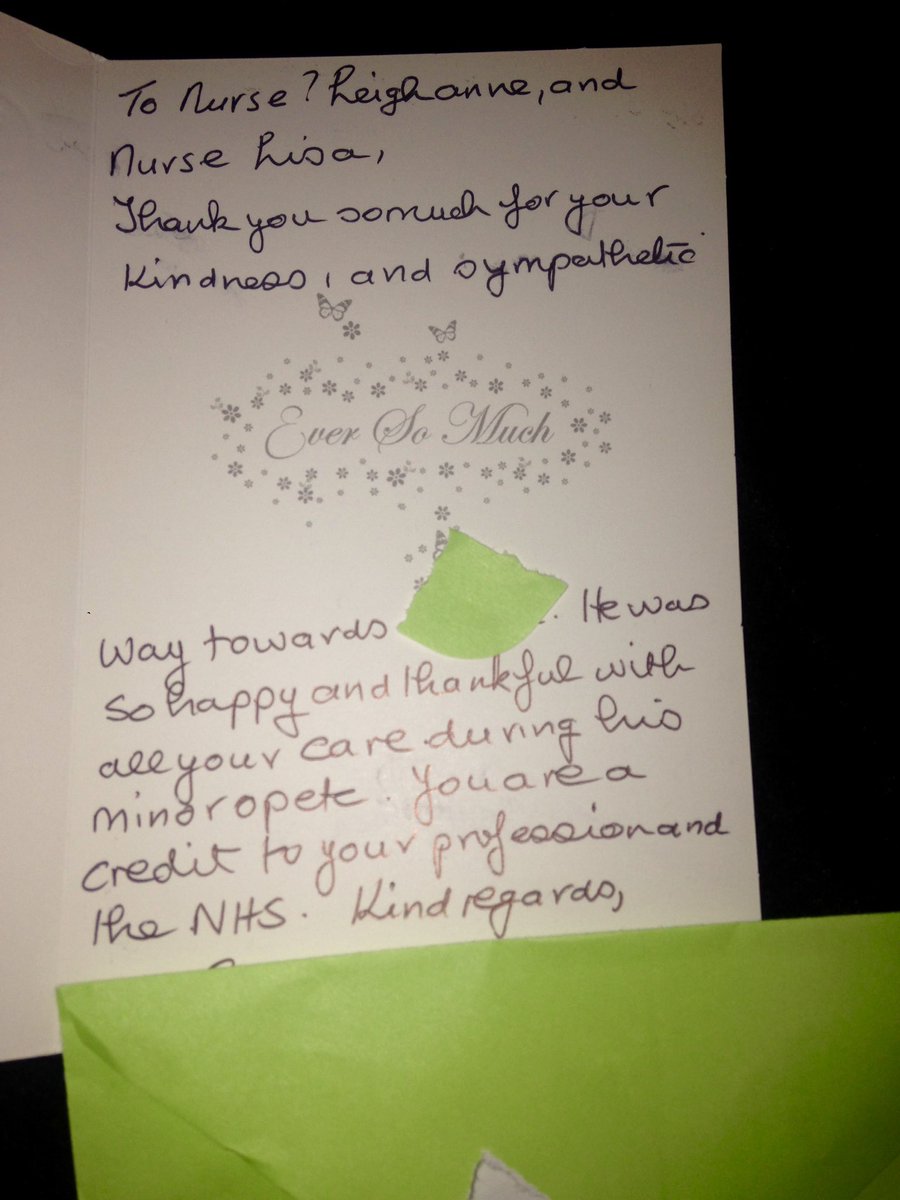 To Nurse? Leighanne, and
Nurse Lisa,
Thank you so much for your
kindness, and sympathetic
Ever So Much
way towards . He was
so happy and thankful with
all your care during his
minor opete. You are a
credit to your profession and
the NHS. Kind regards,